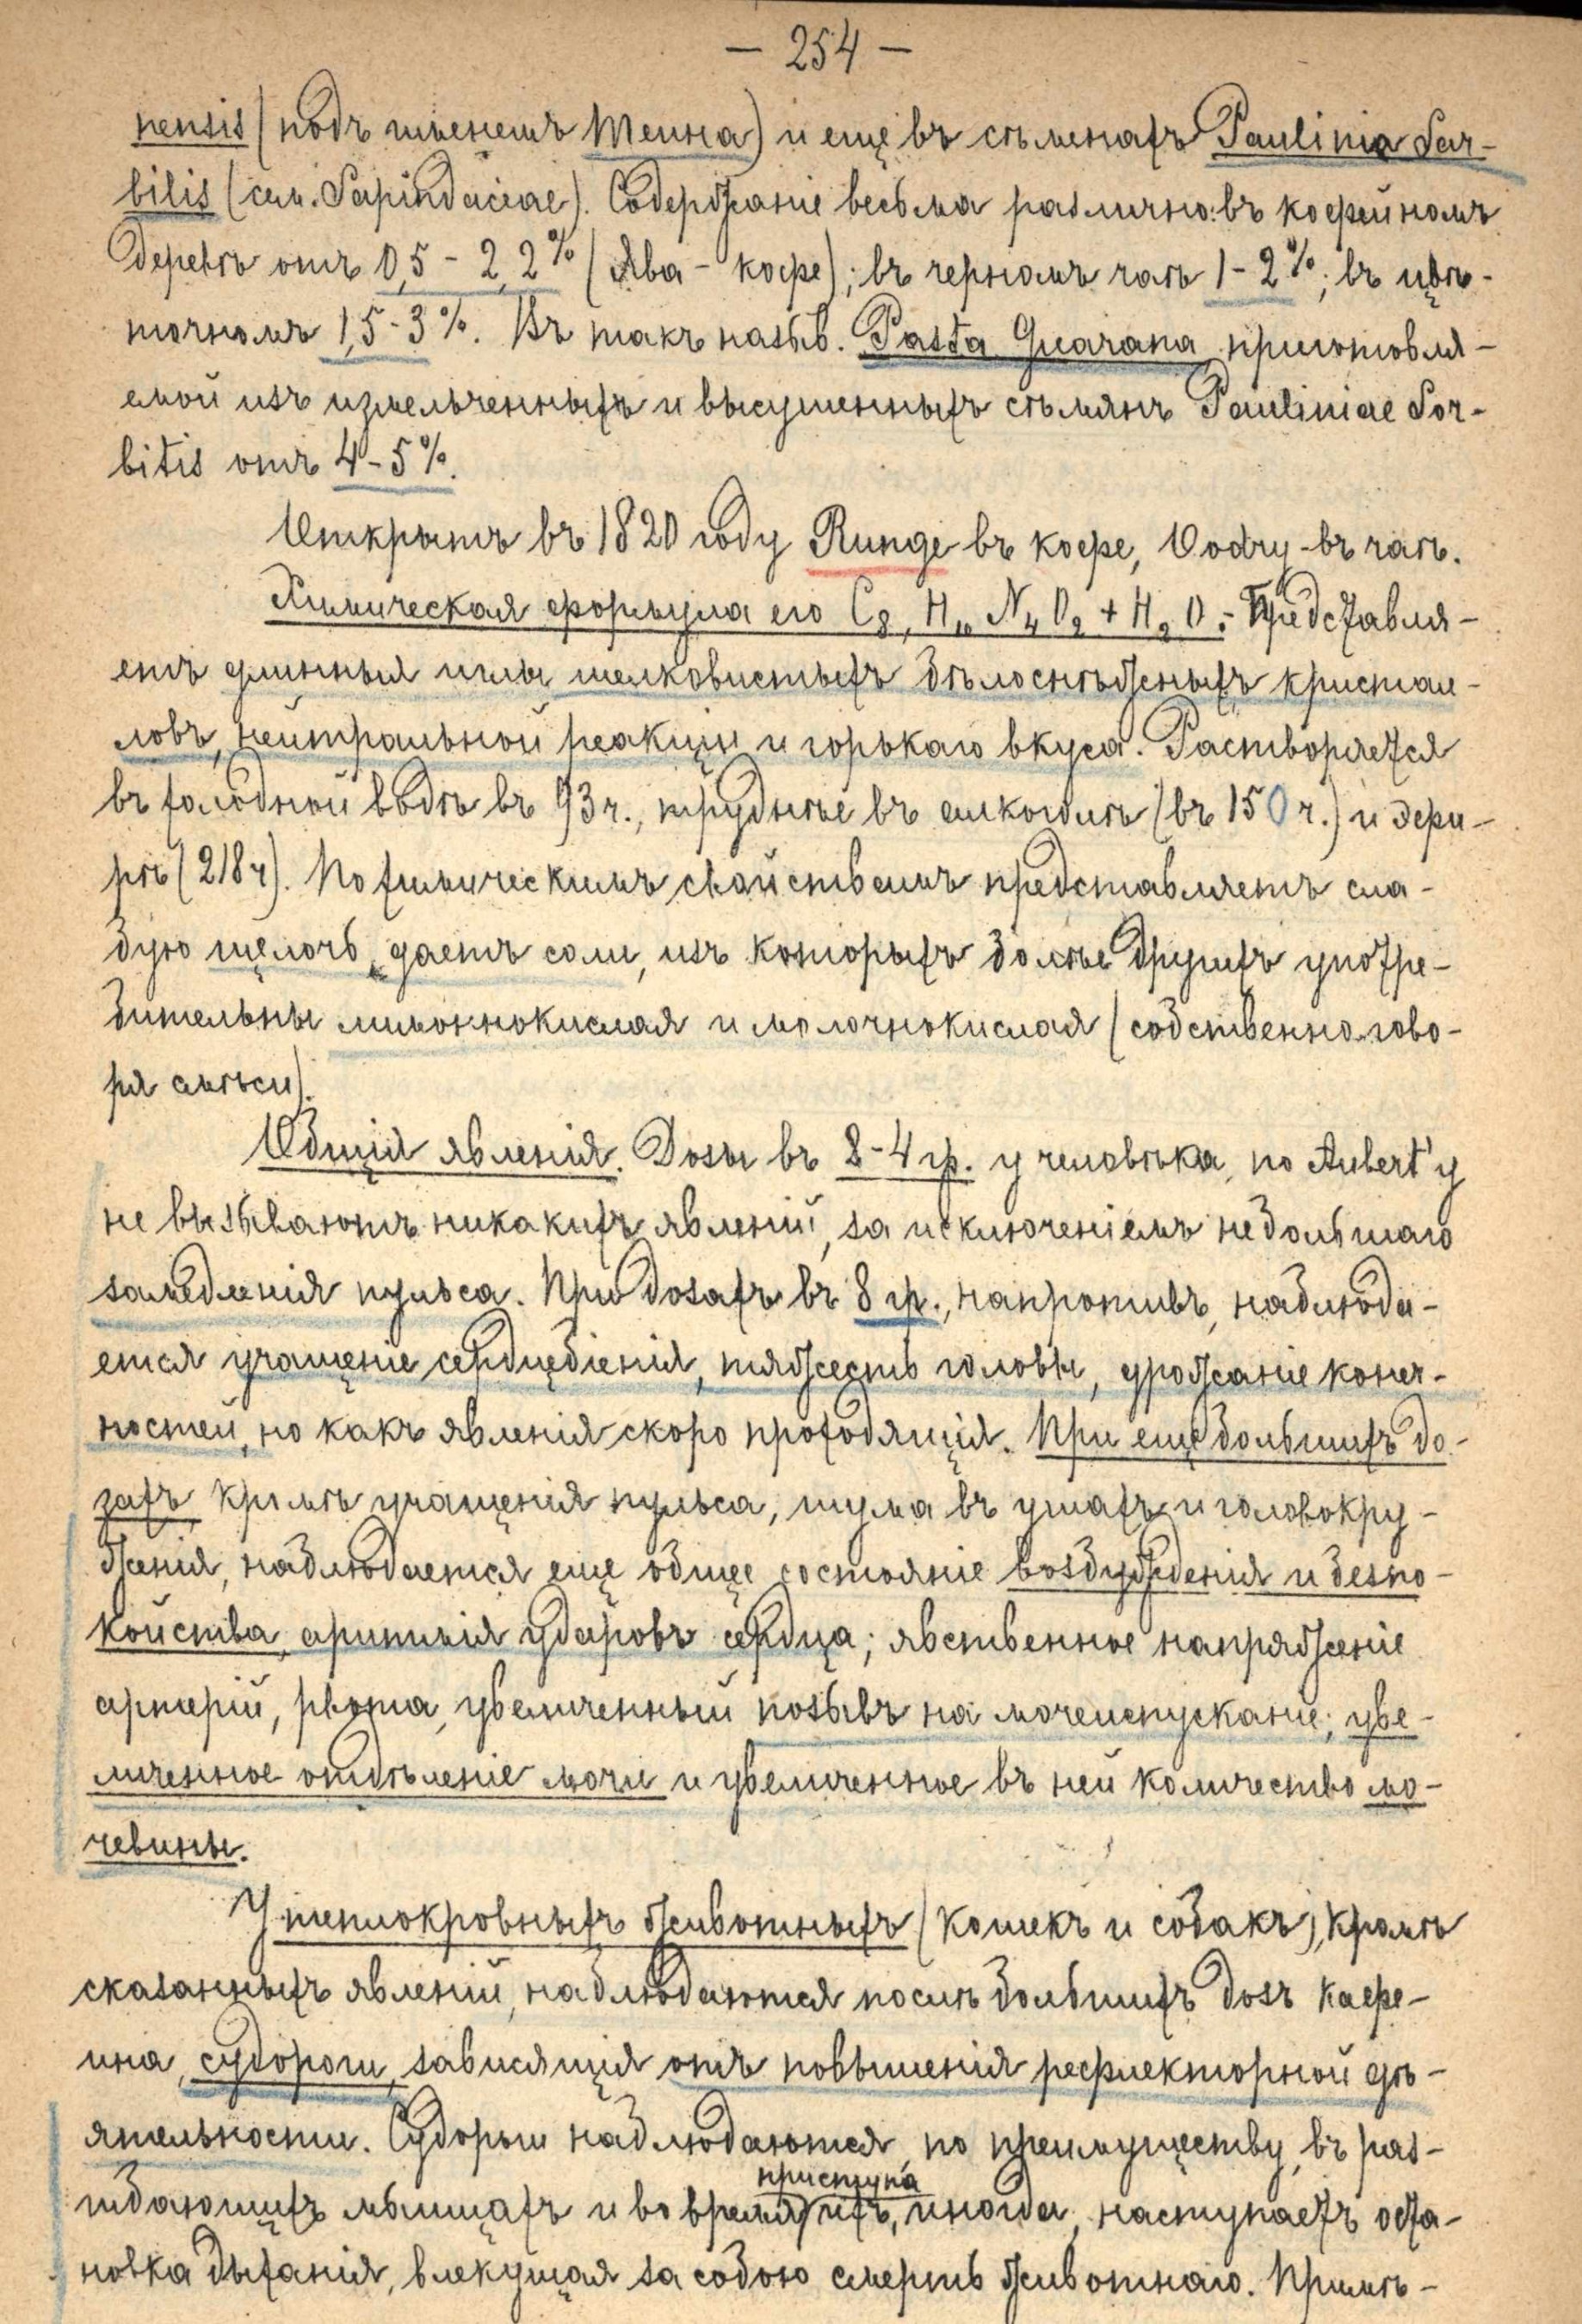 — 254 —
nensis (подъ именемъ теина) и еще въ сѣменахъ Paulinia Sor-
bilis (сем. Sapindaceae). Содержаніе весьма различно: въ кофейномъ
деревѣ отъ 0,5 - 2,2% (Ява - кофе); въ черномъ чаѣ 1 - 2%; въ цвѣ-
точномъ 1,5 - 3%. Въ такъ назыв. Pasta Guarana приготовля-
емой изъ измельченныхъ и высушенныхъ сѣмянъ Pauliniae Sor-
bitis отъ 4 - 5%.
Открытъ въ 1820 году Runge въ кофе, Oodry - въ чаѣ.
Химическая формула его C8, H10 N4 O2 + H2 O. - Представля-
етъ длинныя иглы шелковистыхъ бѣлоснѣжныхъ кристал-
ловъ, нейтральной реакціи и горькаго вкуса. Растворяется
въ холодной водѣ въ 93 ч., труднѣе въ алкоголѣ (въ 150 ч.) и эфи-
рѣ (218 ч). По химическимъ свойствамъ представляетъ сла-
бую щелочь, даетъ соли, изъ которыхъ болѣе другихъ употре-
бительны лимоннокислая и молочнокислая (собственно гово-
ря смѣси).
Общія явленія. Дозы въ 2 - 4 гр. у человѣка, по Aubert'у
не вызываютъ никакихъ явленій, за исключеніемъ небольшаго
замедленія пульса. При дозахъ въ 8 гр., напротивъ, наблюда-
ется учащеніе сердцебіенія, тяжесть головы, дрожаніе конеч-
ностей, но какъ явленія скоро проходящія. При еще большихъ до-
захъ, кромѣ учащенія пульса, шума въ ушахъ и головокру-
женія, наблюдается еще общее состояніе возбужденія и безпо-
койства, аритмія ударовъ сердца; явственное напряженіе
артерій, рвота, увеличенный позывъ на мочеиспусканіе; уве-
личенное отдѣленіе мочи и увеличенное въ ней количество мо-
чевины.
У теплокровныхъ животныхъ (кошекъ и собакъ), кромѣ
сказанныхъ явленій, наблюдаются послѣ большихъ дозъ кафе-
ина, судороги, зависящія отъ повышенія рефлекторной дѣ-
ятельности. Судороги наблюдаются, по преимуществу, въ раз-
гибающихъ мышцахъ и во время приступа ихъ, иногда, наступаетъ оста-
новка дыханія, влекущая за собою смерть животнаго. Примѣ-